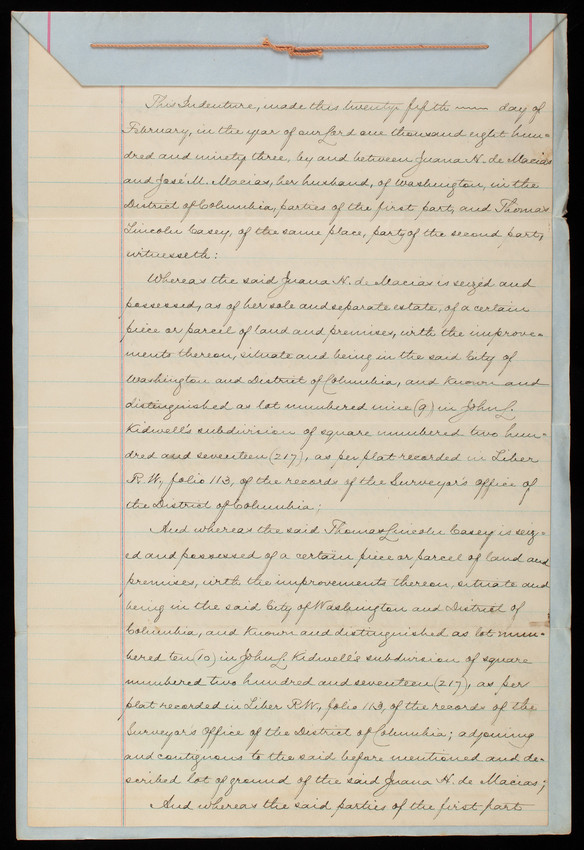 This Indenture, made this twenty fifth —— day of
February, in the year of our Lord one thousand eight hun-
dred and ninety three, by and between Juana N. de Macias
and José M. Macias, her husband, of Washington, in the
District of Columbia, parties of the first part, and Thomas
Lincoln Casey, of the same place, party of the second part,
witnesseth:
Whereas the said Juana N. de Macias is seized and
possessed, as of her sole and separate estate, of a certain
piece or parcel of land and premises, with the improve-
ments thereon, situate and being in the said City of
Washington and District of Columbia, and known and
distinguished as lot numbered nine (9) in John L.
Kidwell's subdivision of square numbered two hun-
dred and seventeen (217), as per plat recorded in Liber
R.W, folio 113, of the records of the Surveyor's Office of
the District of Columbia;
And whereas the said Thomas Lincoln Casey is seiz-
ed and possessed of a certain piece or parcel of land and
premises, with the improvements thereon, situate and
being in the said City of Washington and District of
Columbia, and known and distinguished as lot num-
bered ten (10) in John L. Kidwell's subdivision of square
numbered two hundred and seventeen (217), as per
plat recorded in Liber R.W, folio 113, of the records of the
Surveyor's Office of the District of Columbia; adjoining
and contiguous to the said before mentioned and de-
scribed lot of ground of the said Juana N. de Macias;
And whereas the said parties of the first part